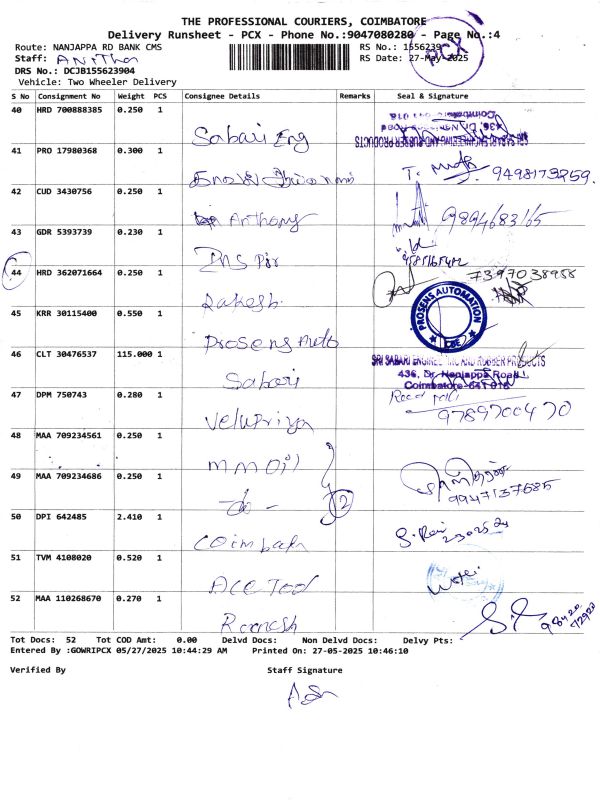 THE PROFESSIONAL COURIERS, COIMBATORE
Delivery Runsheet - PCX - Phone No.:9047080280 - Page No.:4
Route: NANJAPPA RD BANK CMS RS No.: 1556239
Staff: Anitha RS Date: 27-May-2025
PCX
DRS No.: DCJB155623904
Vehicle: Two Wheeler Delivery
S No Consignment No Weight PCS Consignee Details Remarks Seal & Signature
40 HRD 700888385 0.250 1
Sabari Eng
SRI SABARI ENGINEERING AND RUBBER PRODUCTS
436, Dr. Nanjappa Road
Coimbatore-641 018
41 PRO 17980368 0.300 1
9498173259.
42 CUD 3430756 0.250 1
Anthony 9894683165
43 GDR 5393739 0.230 1
44 HRD 362071664 0.250 1
7397038958
Rakesh
45 KRR 30115400 0.550 1
Prosens Auto
PROSENS AUTOMATION
CBE
46 CLT 30476537 115.000 1
SRI SABARI ENGINEERING AND RUBBER PRODUCTS
436, Dr. Nanjappa Road
Coimbatore-641 018
Sabari
47 DPM 750743 0.280 1
Velupriya 9789700470
48 MAA 709234561 0.250 1
mmoil
49 MAA 709234686 0.250 1
2
9947137685
50 DPI 642485 2.410 1
51 TVM 4108020 0.520 1
Ace Tool
52 MAA 110268670 0.270 1
Ramesh
Tot Docs: 52 Tot COD Amt: 0.00 Delvd Docs: Non Delvd Docs: Delvy Pts:
Entered By :GOWRIPCX 05/27/2025 10:44:29 AM Printed On: 27-05-2025 10:46:10
Verified By Staff Signature